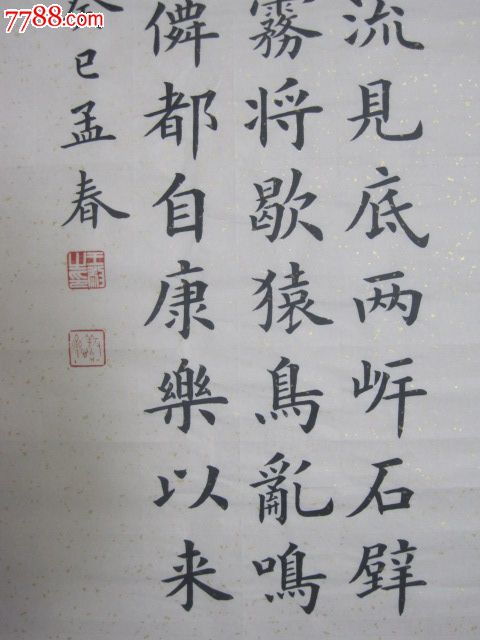 7788.com
流見底两岸石壁
霧将歇猿鳥亂鳴
僊都自康樂以来
癸巳孟春